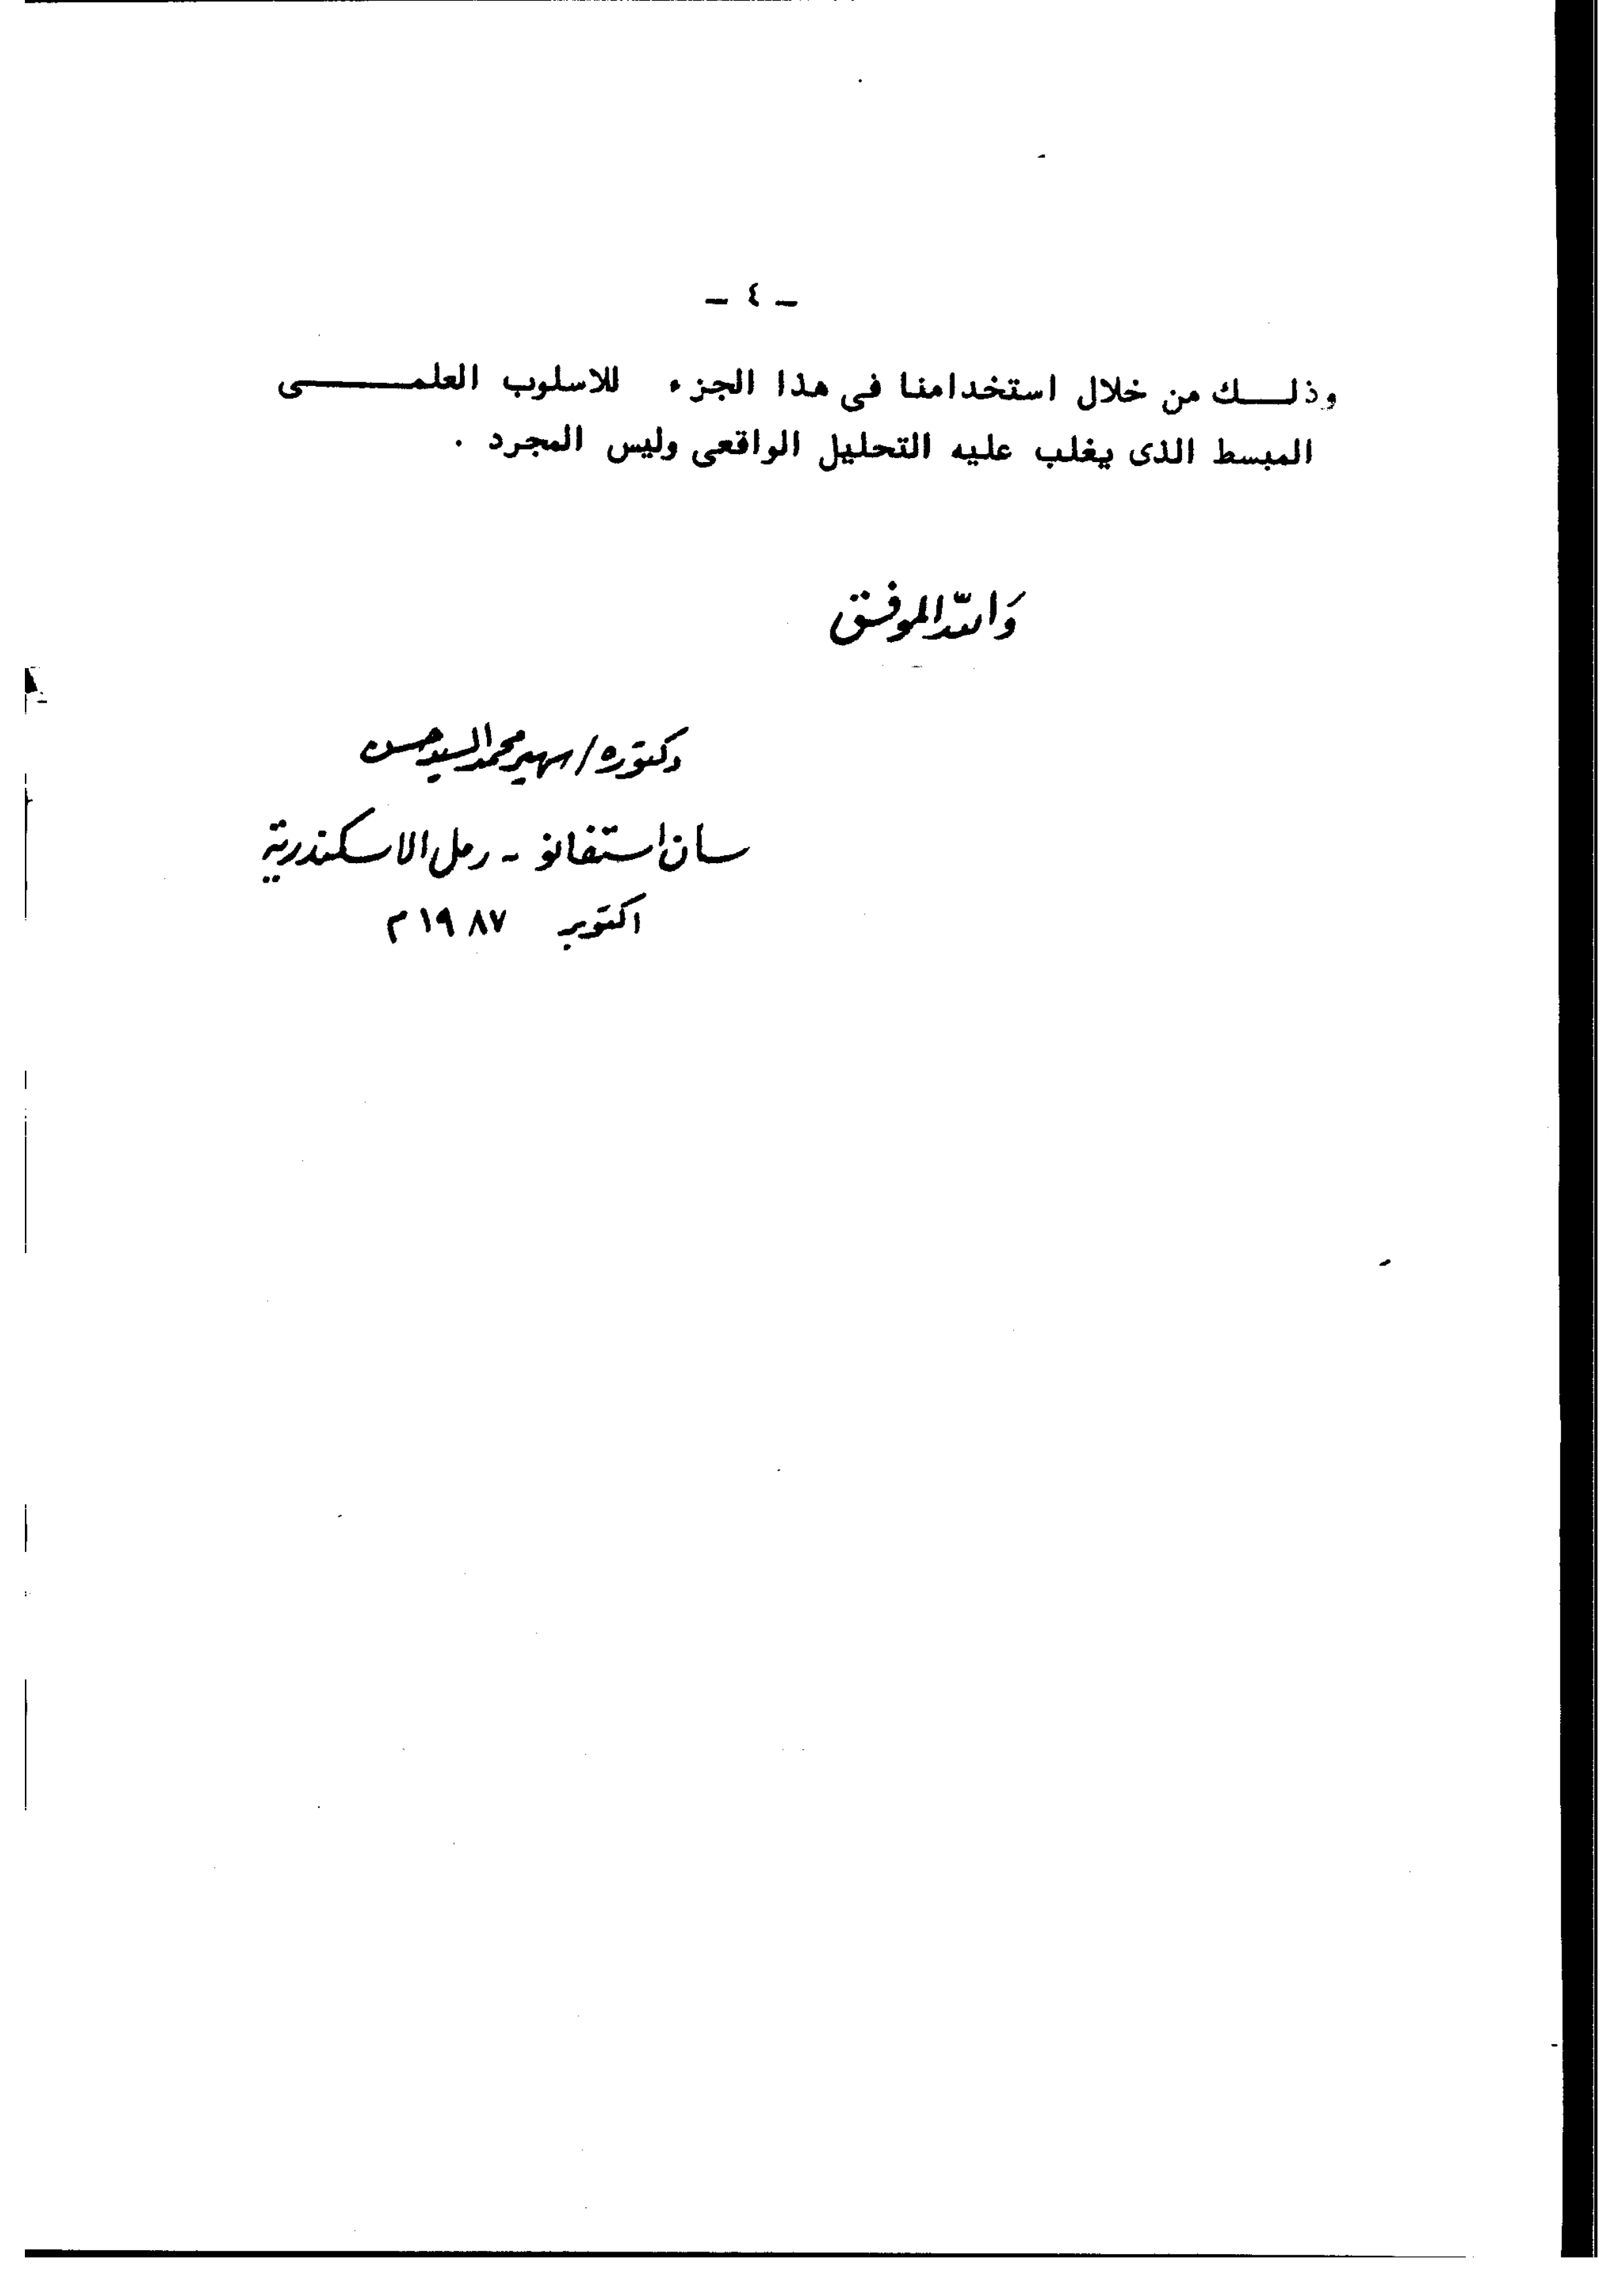 - ٤ -
وذلـــك من خلال استخدامنا فى هذا الجزء للاسلوب العلمـــــى
المبسط الذى يغلب عليه التحليل الواقعى وليس المجرد .
وَاللّه الموفـق
دكتوره / سهير محمد السيد حسن
سـان استفانو - رمل الاسكندرية
اكتوبر ١٩٨٧ م